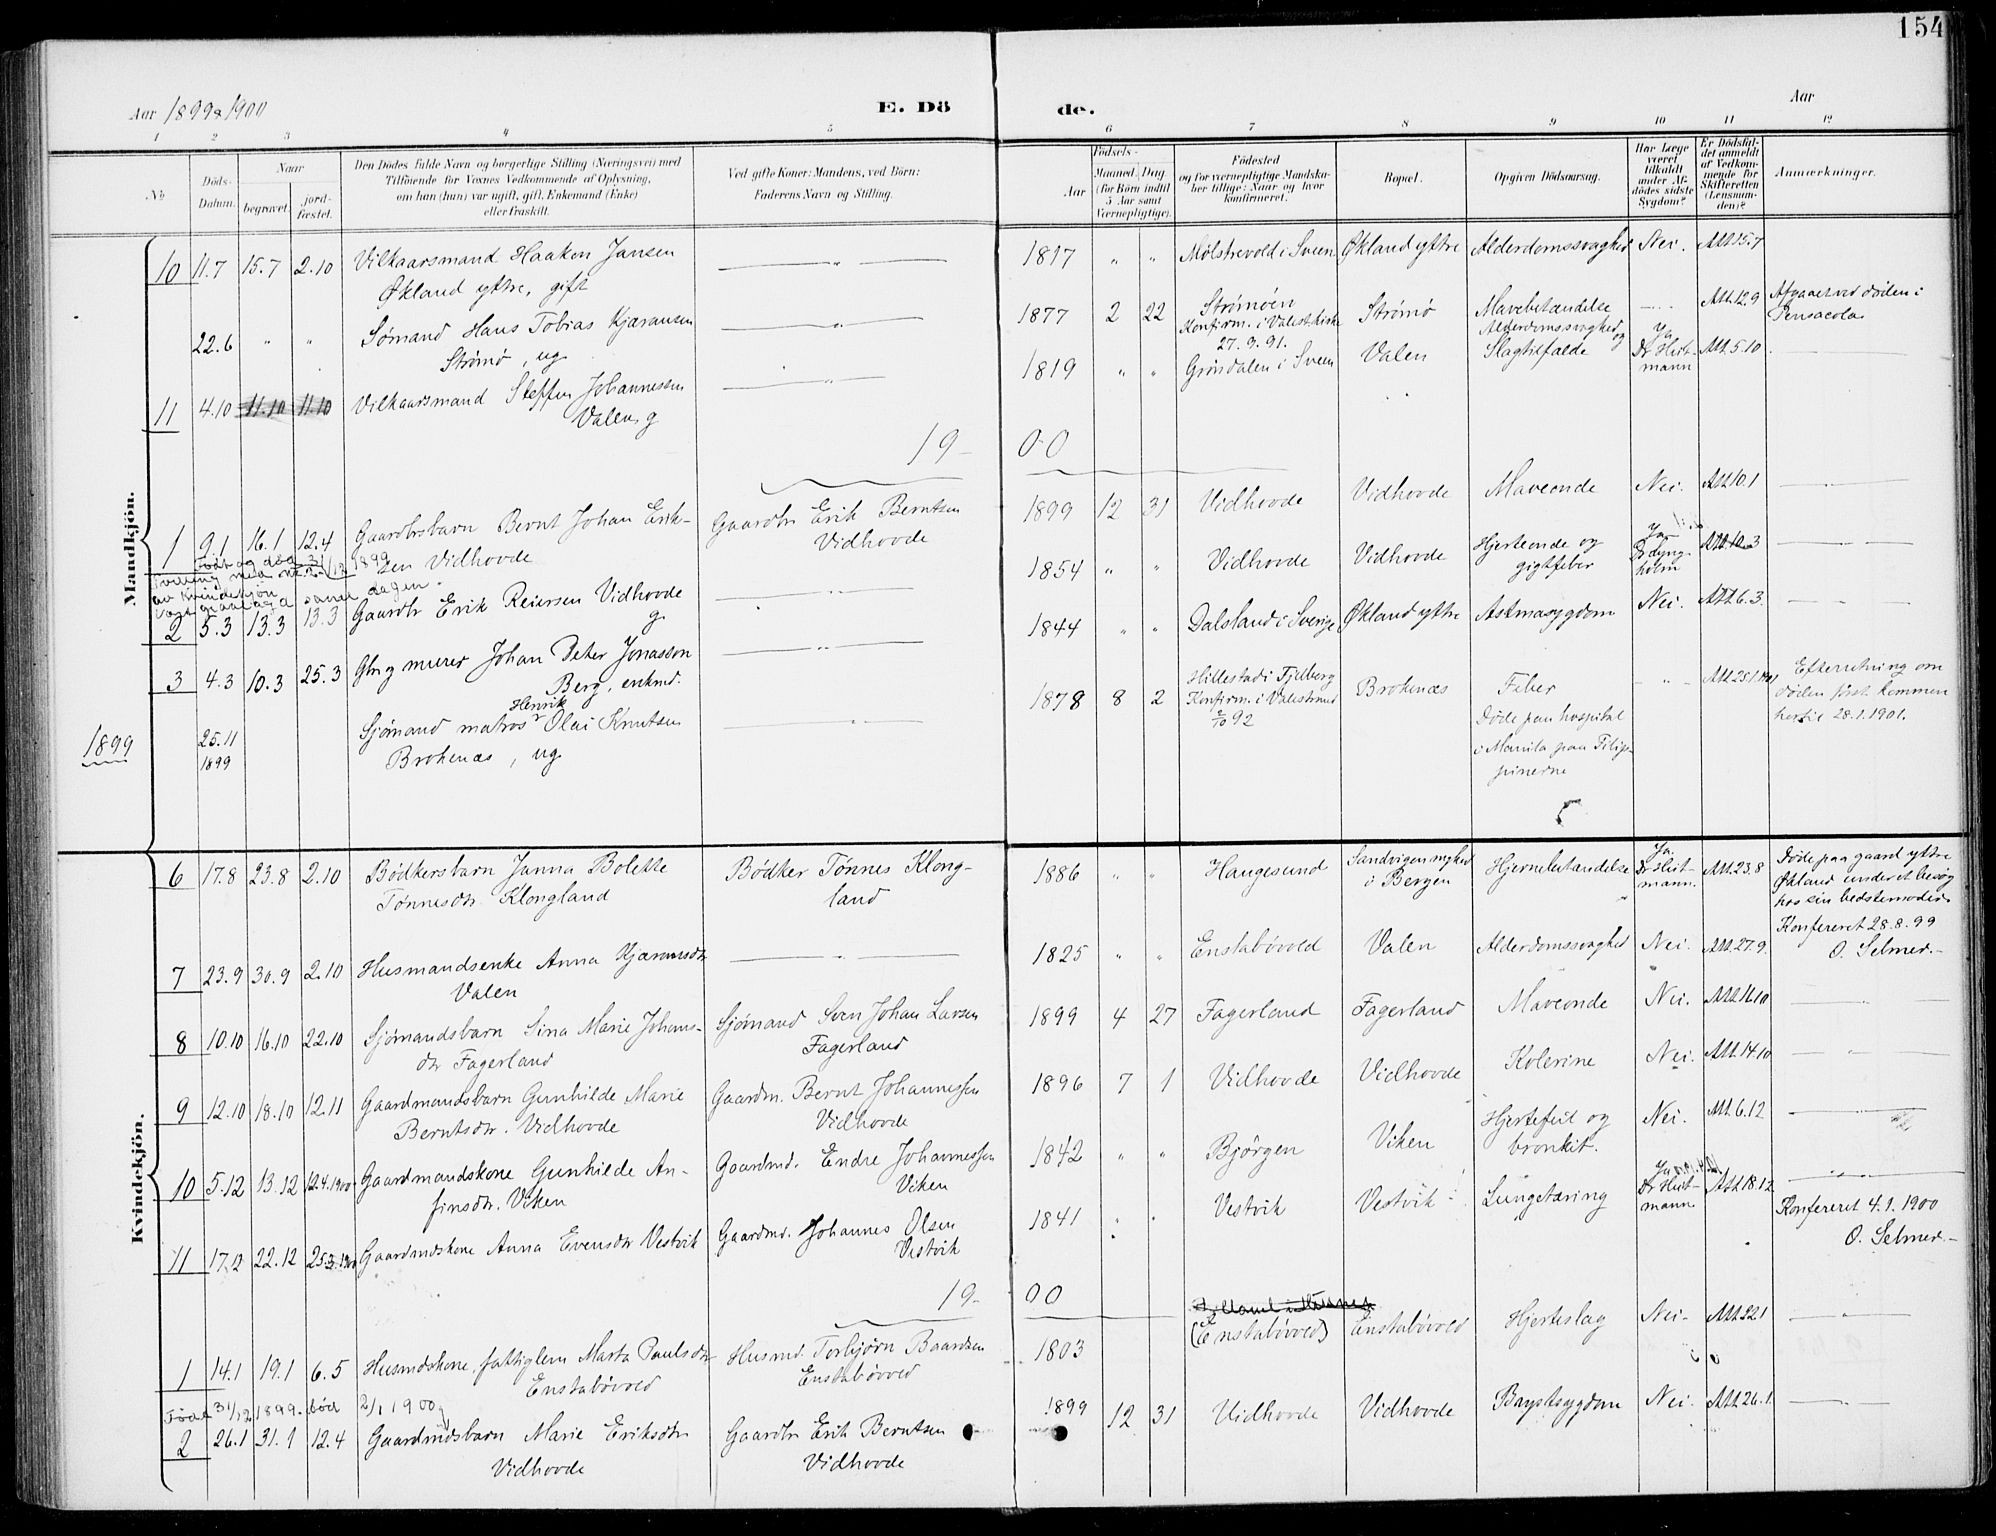 154
Aar 1899 & 1900
E. Dö
de.
Aar
1 2 3 4 5 6 7 8 9 10 11 12
No
Döds-Datum.
Naar
begravet.
jord-fæstet.
Den Dödes fulde Navn og borgerlige Stilling (Næringsvei) med
Tilföiende for Voxnes Vedkommende af Oplysning,
om han (hun) var ugift, gift, Enkemand (Enke)
eller fraskilt.
Ved gifte Koner: Mandens, ved Börn:
Faderens Navn og Stilling.
Födsels-
Aar
Maaned. Dag
(for Börn indtil
5 Aar samt
Værnepligtige).
Födested
og for værnepligtige Mandska-
ber tillige: Naar og hvor
konfirmeret.
Bopæl.
Opgiven Dödsaarsag.
Har Læge
været
tilkaldt
under Af-
dödes sidste
Sygdom?
Er Dödsfal-
det anmeldt
af Vedkom-
mende for
Skifteretten
(Lensman-
den)?
Anmærkninger.
Mandkjön.
10 11.7 15.7 2.10 Vilkaarsmand Haakon Jansen
Økland yttre, gift
1817 " " Mølstrevold i Sveen Økland yttre Alderdomssvaghed Nei. Att. 15.7
22.6 " " Sømand Hans Tobias Kjæransen
Strømø, ug
1877 2 22 Strømøen
Konfirm. i Valest. kirke
27.9.91.
Strømø Mavebetændelse Att. 12.9 Afgaaet ved døden i
Pensacola
11 4.10 11.10 11.10 Vilkaarsmand Steffen Johannessen
Valen, g
1819 " " Grøndalen i Sveen Valen Alderdomssvaghed og
Slagtilfælde
Ja
Dr Heit-
mann
Att. 5.10
19-00
1 9.1 16.1 12.4 Gaardbrsbarn Bernt Johan Erik-
sen Vidhovde
Gaardbr Erik Berntsen
Vidhovde
1899 12 31 Vidhovde Vidhovde Maveonde Nei. Att. 10.1
Født og død 31/12 1899
Tvilling med nr. 2
av Kvindekjøn
samme dagen
2 5.3 13.3 13.3 Gaardbr Erik Reiersen Vidhovde
g
1854 " " Vidhovde Vidhovde Hjerteonde og
gigtfeber
Ja
Dr Lyng-
holm
Att. 10.3
3 4.3 10.3 25.3 Gbr og murer Johan Peter Jonasson
Berg, enkmd.
1844 " " Dalsland i Sverige Økland yttre Astmasygdom Nei. Att. 6.3
1899
25.11
1899
Henrik
Sjømand matros Olai Knutsen
Brokenæs, ug
1878 8 2 Hillestad i Fjelberg
Konfirm. i Valestrand
2/10 92
Brokenæs Feber
Døde paa hospital
i Manila paa Filip-
pinerne
Att. 25.1.1901
Efterretning om
døden først kommen
hertil 28.1.1901.
Kvindekjön.
6 17.8 23.8 2.10 Bødkersbarn Janna Bolette
Tønnesdtr. Klongland
Bødker Tønnes Klong-
land
1886 " " Haugesund Sandvigen nyhed
i Bergen
Hjernebetændelse
Ja.
Dr Heit-
mann.
Att. 23.8
Døde paa gaard yttre
Økland under et besøg
hos sin bedstemoder.
Konfereret 28.8.99
O. Selmer.-
7 23.9 30.9 2.10 Husmandsenke Anna Kjæransdtr
Valen
1825 " " Enstabøvold Valen Alderdomssvaghed Nei. Att. 27.9.
8 10.10 16.10 22.10 Sjømandsbarn Sina Marie Johans-
dtr Fagerland
Sjømand Sven Johan Larsen
Fagerland
1899 4 27 Fagerland Fagerland Maveonde Nei. Att. 16.10
9 12.10 18.10 12.11 Gaardmandsbarn Gunhilde Marie
Berntsdtr. Vidhovde
Gaardm. Bernt Johannessen
Vidhovde
1896 7 1 Vidhovde Vidhovde Kolerine Nei. Att. 14.10
10 5.12 13.12 12.4.1900 Gaardmandskone Gunhilde An-
finsdtr. Viken
Gaardmd. Endre Johannessen
Viken
1842 " " Bjørgen Viken Hjertefeil og
bronkit.
Nei. Att. 6.12
11 17.12 22.12 25.3.1900 Gaardmdskone Anna Evensdtr Vestvik
Gaardmd. Johannes Olsen
Vestvik
1841 " " Vestvik Vestvik Lungetæring
Ja
Dr Heit-
mann
Att. 18.12
Konfereret 4.1.1900
O. Selmer.-
19-00
1 14.1 19.1 6.5 Husmdskone, fattiglem Marta Paulsdtr
Enstabøvold
Husmd. Torbjørn Baardsen
Enstabøvold
1803 (Enstabøvold) Enstabøvold Hjerteslag Nei- Att. 22.1
Født 31/12 1899. død 2/1 1900
2 26.1 31.1 12.4 Gaardmdsbarn Marie Eriksdtr
Vidhovde
Gaardbr Erik Berntsen
Vidhovde
1899 12 31 Vidhovde Vidhovde Brystsygdom Nei. Att. 26.1.